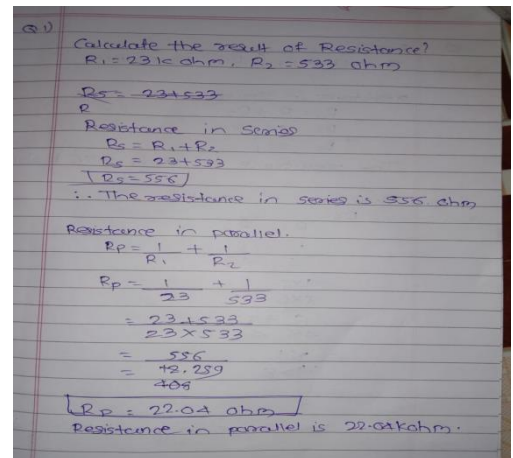 Q1)
Calculate the result of Resistance?
R1 = 23 k ohm, R2 = 533 ohm
Rs = 23+533
R
Resistance in series
Rs = R1 + R2
Rs = 23+533
Rs = 556
∴ The resistance in series is 556 ohm
Resistance in parallel.
Rp = 1/R1 + 1/R2
Rp = 1/23 + 1/533
= 23+533 / 23×533
= 556 / 12,259
=
408
Rp = 22.04 ohm
Resistance in parallel is 22.04kohm.